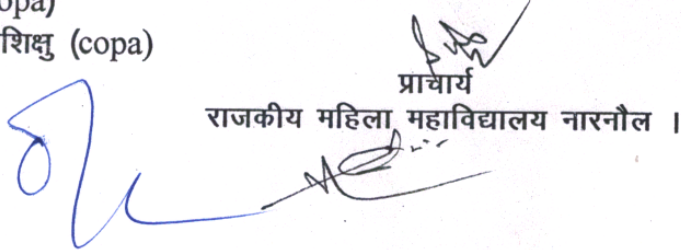 शिक्षु (copa)
प्राचार्य
राजकीय महिला महाविद्यालय नारनौल ।